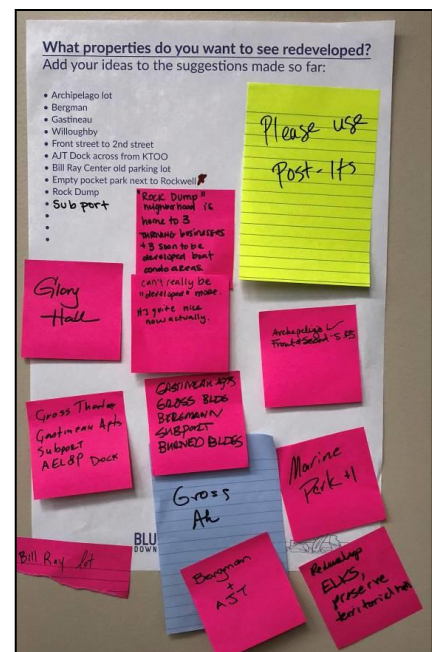 What properties do you want to see redeveloped?
Add your ideas to the suggestions made so far:
• Archipelago lot
• Bergman
• Gastineau
• Willoughby
• Front street to 2nd street
• AJT Dock across from KTOO
• Bill Ray Center old parking lot
• Empty pocket park next to Rockwell
• Rock Dump
• Subport
•
•
•
Please use
Post-Its
"Rock Dump"
neighborhood is
home to 3
THRIVING businesses
+ 3 soon to be
developed boat
condo areas.
can't really be
"developed" more.
It's quite nice
now actually.
Glory
Hall
Archipelago
Front & Second
Gross Theater
Gastineau Apts
Subport
AEL&P Dock
GASTINEAU APTS
GROSS BLDG
BERGMANN
SUBPORT
BURNED BLDGS
Gross
Marine
Park +1
BLU
DOWN
Bill Ray lot
Bergman
+
AJT
Redevelop
ELKS,
preserve
territorial